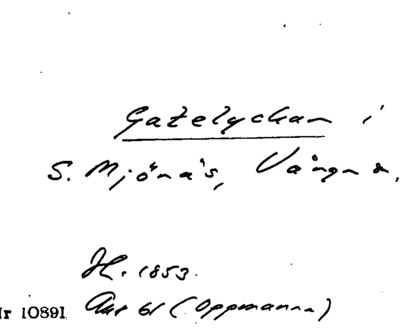 Gatelyckan i
S. Mjönäs, Vånga s.
H. 1853.
Nr 10891 Akt 61 (Oppmanna)